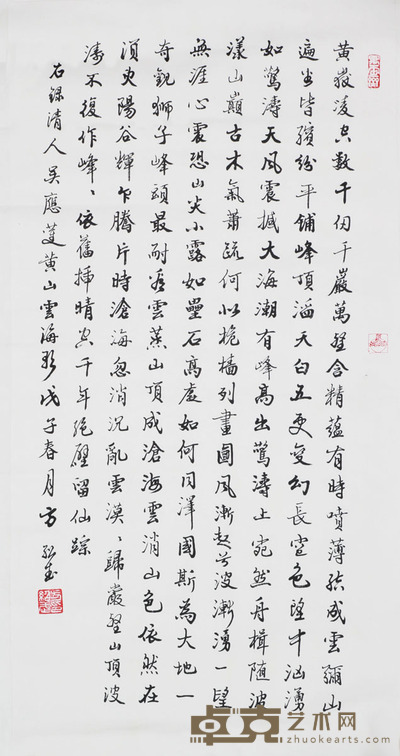 黄嶽凌空数千仞千巖萬壑含精蘊有時噴薄結成雲彌山
遍谷皆繽紛平鋪峰頂滔天白五更变幻長空色望中汹湧
如驚濤天風震撼大海潮有峰高出驚濤上宛然舟楫随波
漾山巔古木氣蕭疏何似桅檣列畫圖風漸起兮波漸湧一望
無涯心震恐山尖小露如壘石高處如何同澤國斯為大地一
奇觀獅子峰頭最耐看雲蒸山頂成滄海雲消山色依然在
須臾陽谷輝乍騰片時滄海忽消沉亂雲漠漠歸巖壑山頂波
濤不復作峰峰依舊插晴空千年絕壁留仙踪
右錄清人吴應蓮黄山雲海歌戊子春月方
卓克艺术网
www.zhuokearts.com